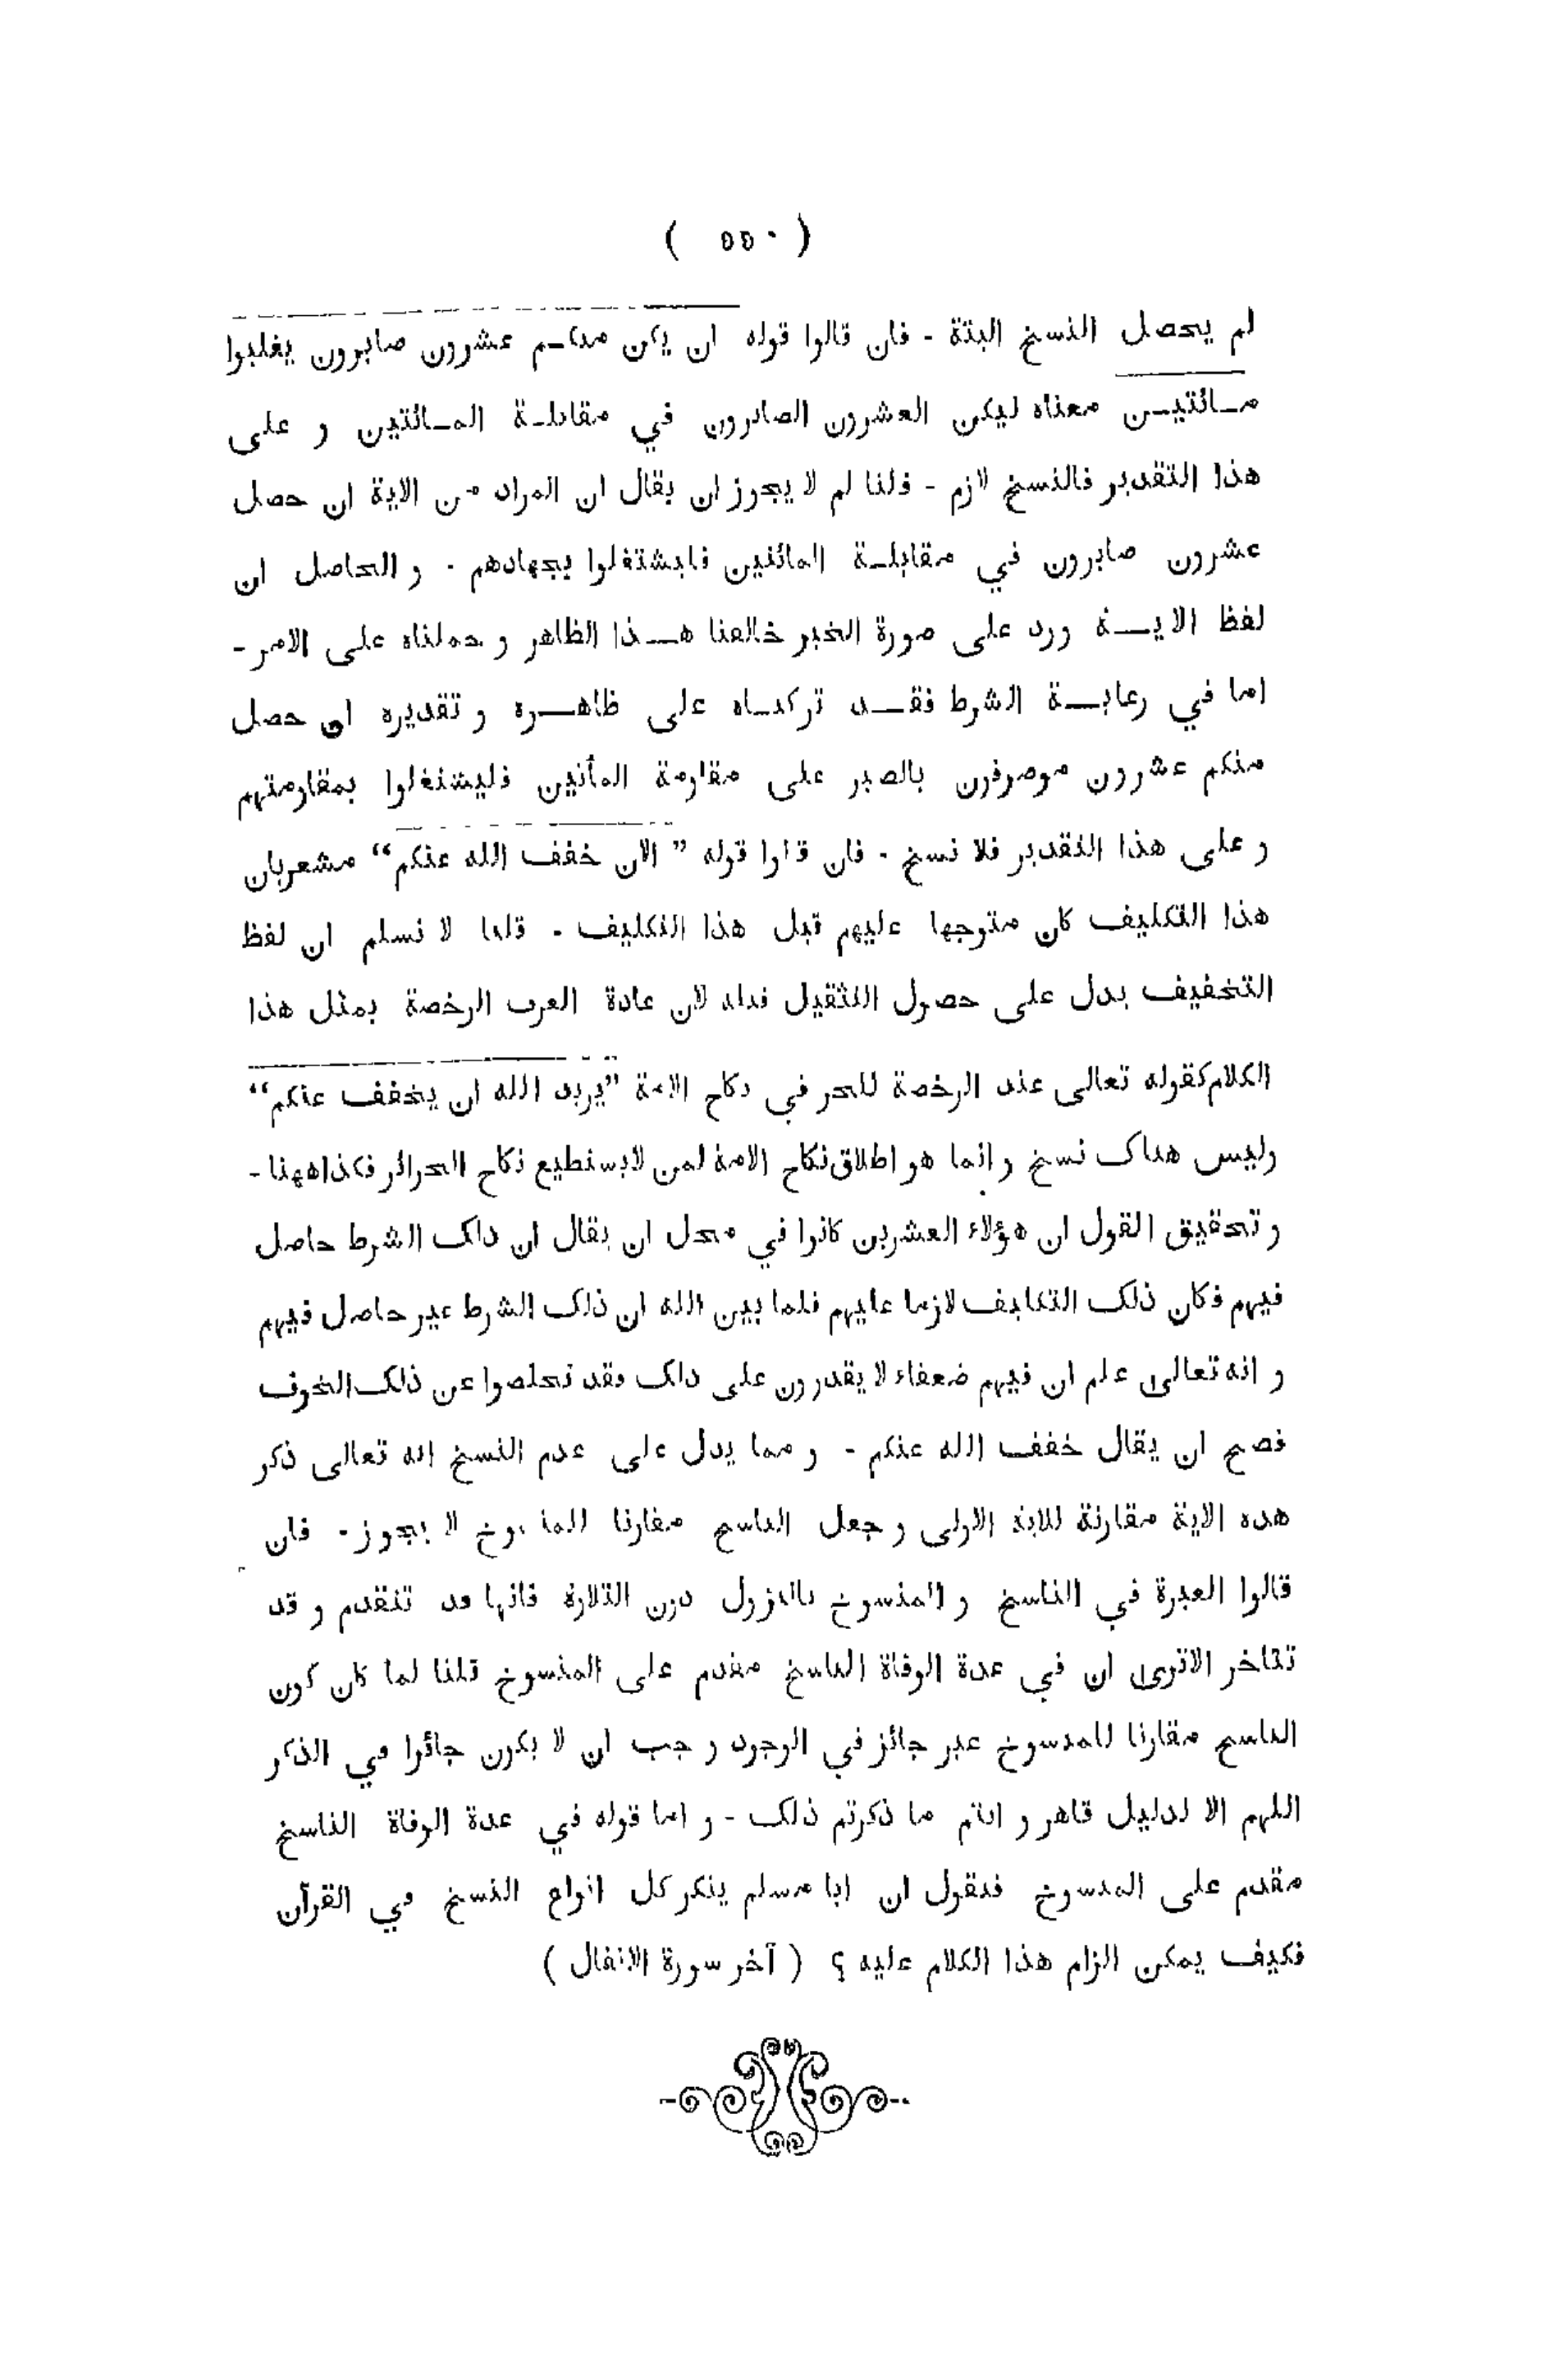 ( ٥٥٠ )
لم يحصل النسخ البتة - فان قالوا قوله ان يكن منكم عشرون صابرون يغلبوا
مائتين معناه ليكن العشرون الصابرون في مقابلة المائتين و على
هذا التقدير فالنسخ لازم - قلنا لم لا يجوز ان يقال ان المراد من الاية ان حصل
عشرون صابرون في مقابلة المائتين فليشتغلوا بجهادهم - و الحاصل ان
لفظ الاية ورد على صورة الخبر خالفنا هذا الظاهر و حملناه على الامر -
اما في رعاية الشرط فقد تركناه على ظاهره و تقديره ان حصل
منكم عشرون موصوفون بالصبر على مقاومة المأتين فليشتغلوا بمقاومتهم
و على هذا التقدير فلا نسخ - فان قالوا قوله ” الان خفف الله عنكم “ مشعر بان
هذا التكليف كان متوجها عليهم قبل هذا التكليف - قلنا لا نسلم ان لفظ
التخفيف يدل على حصول التثقيل قبله لان عادة العرب الرخصة بمثل هذا
الكلام كقوله تعالى عند الرخصة للحر في نكاح الامة ” يريد الله ان يخفف عنكم “
وليس هناك نسخ و انما هو اطلاق نكاح الامة لمن لا يستطيع نكاح الحرائر فكذا ههنا -
و تحقيق القول ان هؤلاء العشرين كانوا في محل ان يقال ان ذلك الشرط حاصل
فيهم فكان ذلك التكليف لازما عليهم فلما بين الله ان ذلك الشرط غير حاصل فيهم
و انه تعالى علم ان فيهم ضعفاء لا يقدرون على ذلك فقد تخلصوا عن ذلك الخوف
فصح ان يقال خفف الله عنكم - و مما يدل على عدم النسخ انه تعالى ذكر
هذه الاية مقارنة للاية الاولى و جعل الناسخ مقارنا للمنسوخ لا يجوز - فان
قالوا العبرة في الناسخ و المنسوخ بالنزول دون التلاوة فانها قد تتقدم و قد
تتاخر الاترى ان في عدة الوفاة الناسخ مقدم على المنسوخ قلنا لما كان كون
الناسخ مقارنا للمنسوخ غير جائز في الوجود وجب ان لا يكون جائزا في الذكر
اللهم الا لدليل قاهر و انتم ما ذكرتم ذلك - و اما قوله في عدة الوفاة الناسخ
مقدم على المنسوخ فنقول ان ابا مسلم ينكر كل انواع النسخ في القرآن
فكيف يمكن الزام هذا الكلام عليه ؟ ( آخر سورة الانفال )